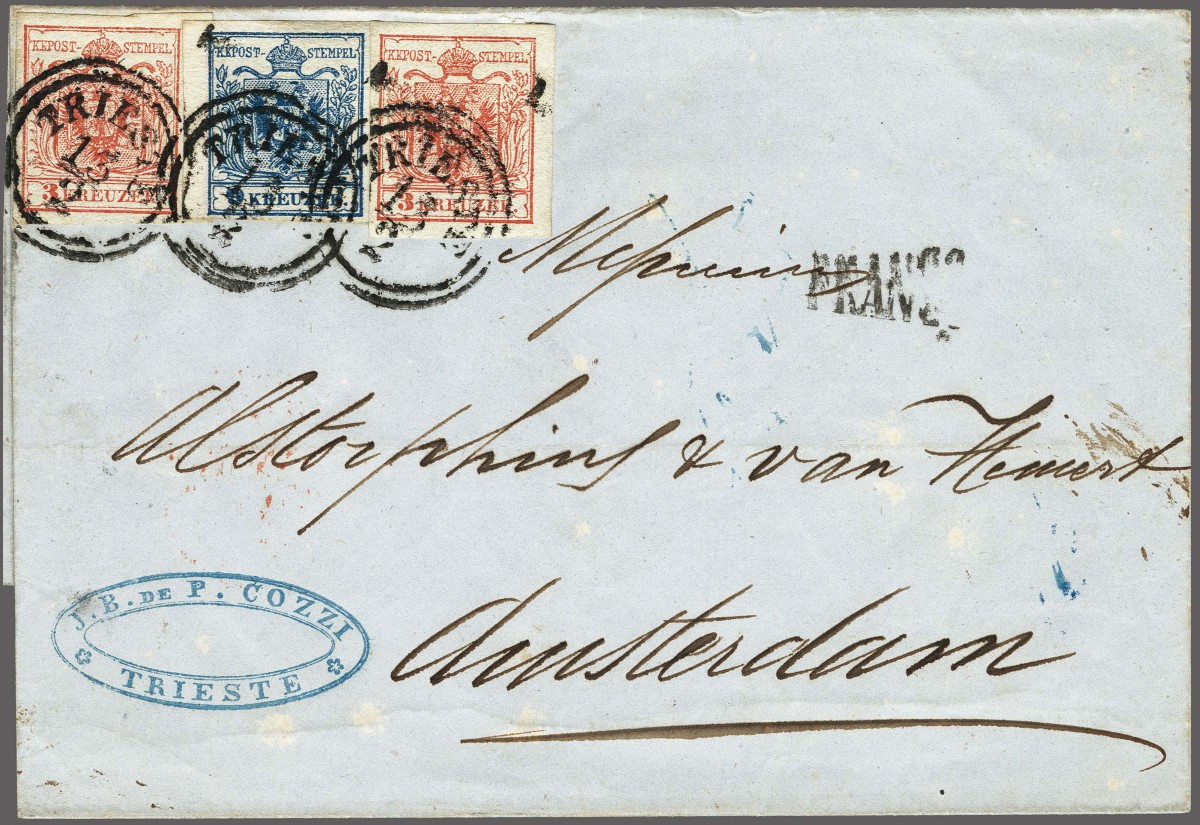 KKPOST-STEMPEL
3 KREUZER
KKPOST-STEMPEL
9 KREUZER
KKPOST-STEMPEL
3 KREUZER
TRIEST
TRIEST
TRIEST
FRANCO
Alstorphius & van Hemert
Amsterdam
J. B. DE P. COZZI
TRIESTE